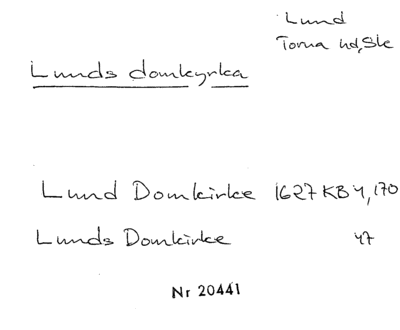 Lund
Torna hd, Sk
Lunds domkyrka
Lund Domkirke 1627 KB 4, 170
Lunds Domkirke 47
Nr 20441